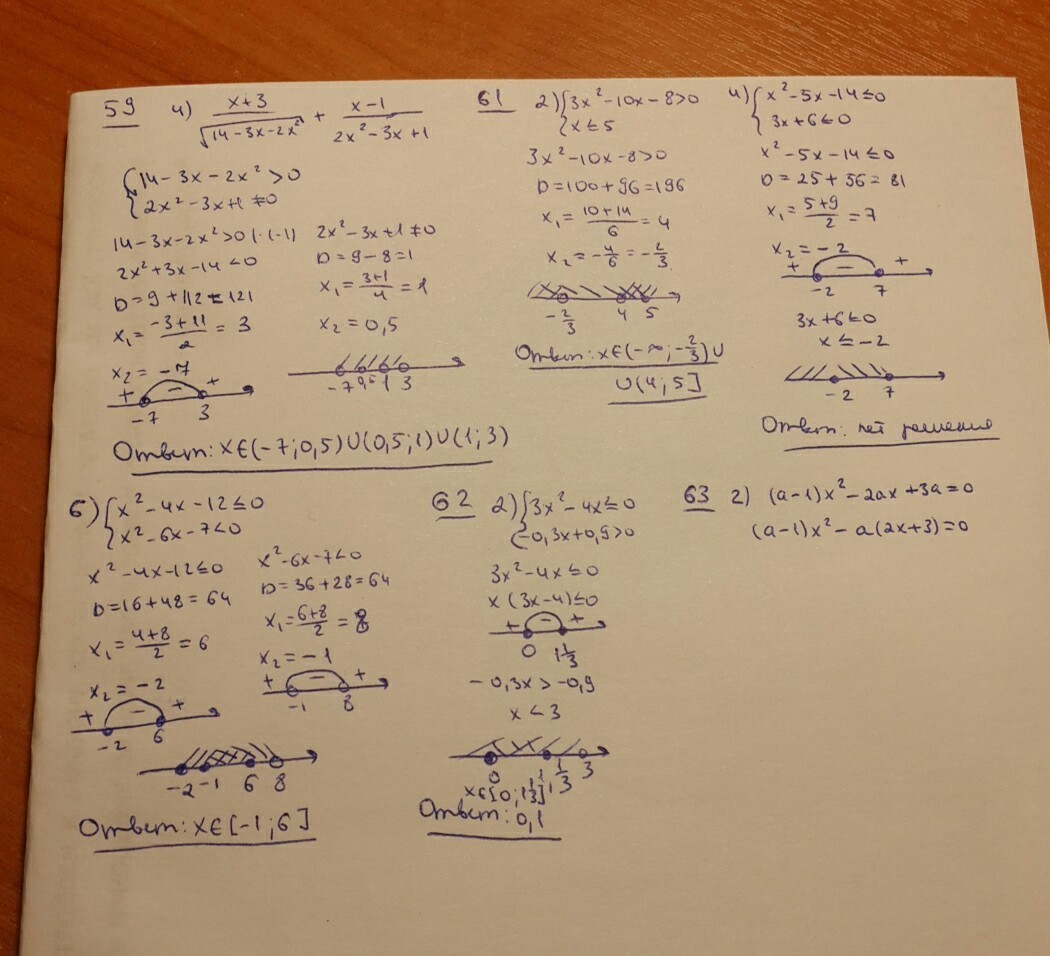 59 4) (x+3)/√(14-3x-2x²) + (x-1)/(2x²-3x+1)
{14-3x-2x²>0
{2x²-3x+1≠0
14-3x-2x²>0 |·(-1)
2x²+3x-14<0
D=9+112=121
x₁=(-3+11)/2=3
x₂=-7
+ - +
-7 3
2x²-3x+1≠0
D=9-8=1
x₁=(3+1)/4=1
x₂=0,5
-7 0,5 1 3
Ответ: x∈(-7;0,5)∪(0,5;1)∪(1;3)
61 2) {3x²-10x-8>0
{x≤5
3x²-10x-8>0
D=100+96=196
x₁=(10+14)/6=4
x₂=-4/6=-2/3
-2/3 4 5
Ответ: x∈(-∞;-2/3)∪
∪(4;5]
4) {x²-5x-14≤0
{3x+6≤0
x²-5x-14≤0
D=25+56=81
x₁=(5+9)/2=7
x₂=-2
+ - +
-2 7
3x+6≤0
x≤-2
-2 7
Ответ: нет решения
6) {x²-4x-12≤0
{x²-6x-7<0
x²-4x-12≤0
D=16+48=64
x₁=(4+8)/2=6
x₂=-2
+ - +
-2 6
x²-6x-7<0
D=36+28=64
x₁=(6+8)/2=8
x₂=-1
+ - +
-1 8
-2 -1 6 8
Ответ: x∈[-1;6]
62 2) {3x²-4x≤0
{-0,3x+0,9>0
3x²-4x≤0
x(3x-4)≤0
+ - +
0 1 1/3
-0,3x>-0,9
x<3
0 1 1 1/3 3
x∈[0;1 1/3]
Ответ: 0,1
63 2) (a-1)x²-2ax+3a=0
(a-1)x²-a(2x+3)=0